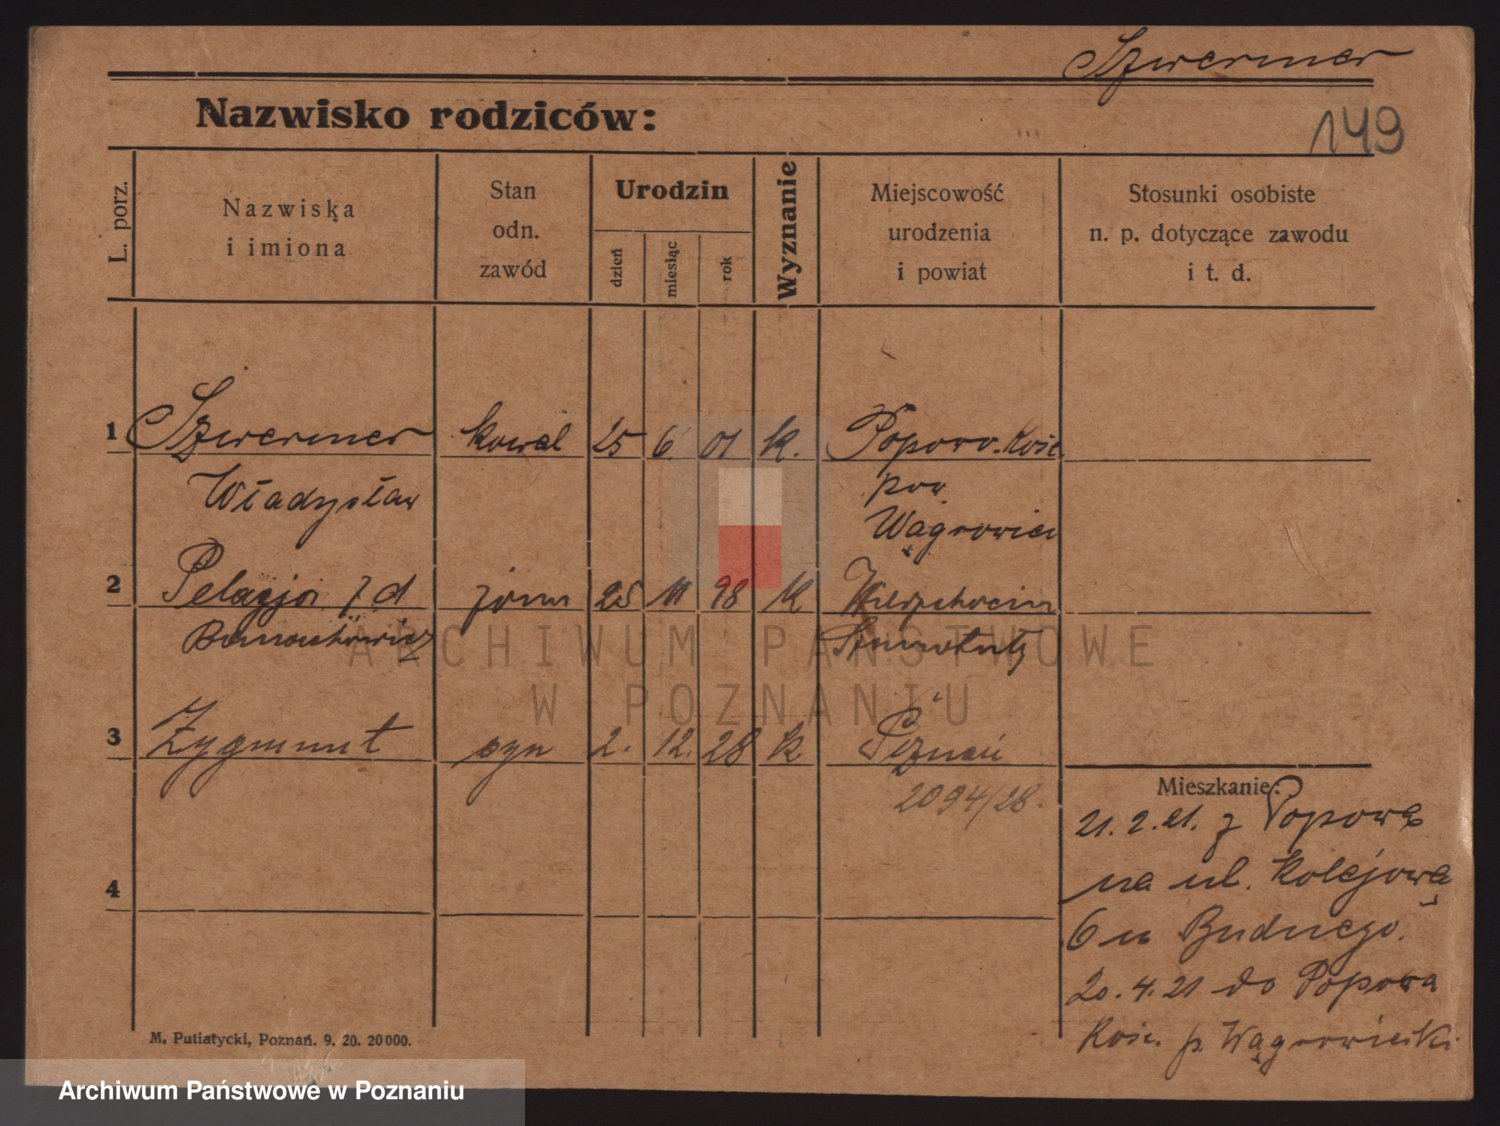 Szwermer
149
Nazwisko rodziców:
L. porz.
Nazwiska
i imiona
Stan
odn.
zawód
Urodzin
dzień
miesiąc
rok
Wyznanie
Miejscowość
urodzenia
i powiat
Stosunki osobiste
n. p. dotyczące zawodu
i t. d.
1 Szwermer kowal 25 6 01 k. Popowo-Kośc
Władysław pow.
Wągrowiec
2 Pelagja z d żona 25 98 k
Szamotuły
3 Zygmunt syn 2. 12. 28 k Poznań
2094/28.
4
Mieszkanie:
21.2.21. z Popowa
na ul. Kolejową
6 u Budnego.
20.4.21 do Popowa
Kośc. p. Wągrowiecki
M. Putiatycki, Poznań. 9. 20. 20000.
ARCHIWUM PAŃSTWOWE
W POZNANIU
Archiwum Państwowe w Poznaniu